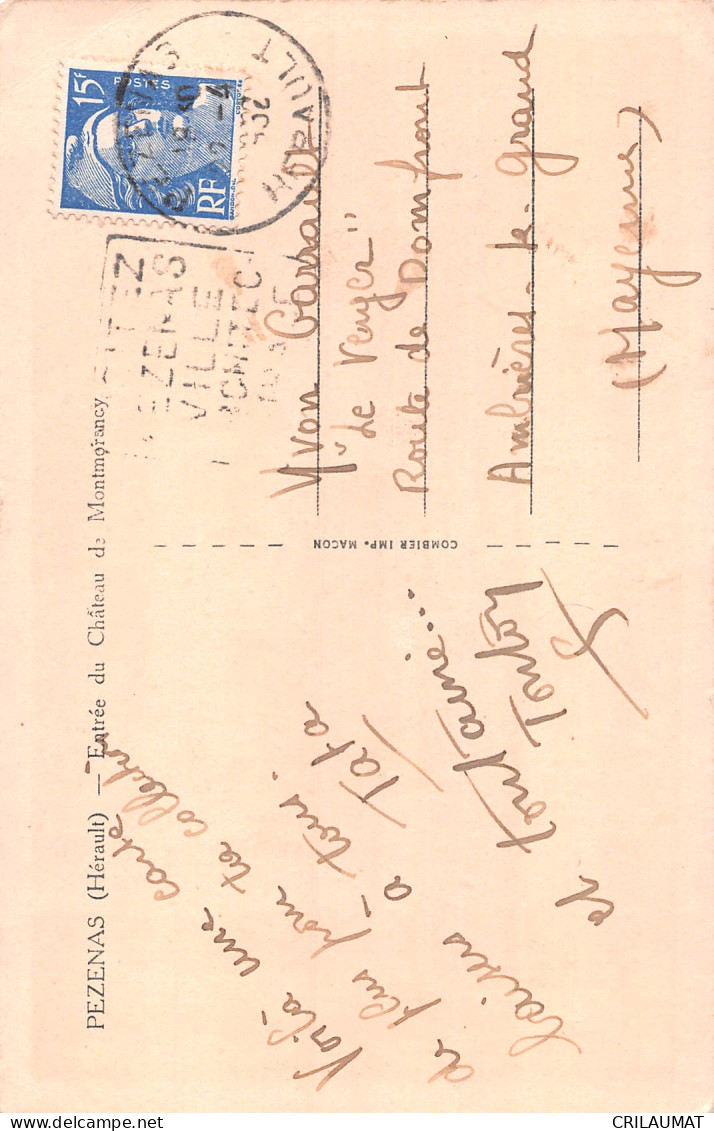 PEZENAS (Hérault) — Entrée du Château de Montmorancy
Voilà une carte
de plus pour ta collection
baisers à tous.
Tata
et toutaime...
Tonton
COMBIER IMP. MACON
15F
POSTES
RF
HERAULT
VILLE
Yvon
"Le Verger"
Route de Domfront
Ambrières-le-Grand
(Mayenne)
CRILAUMAT